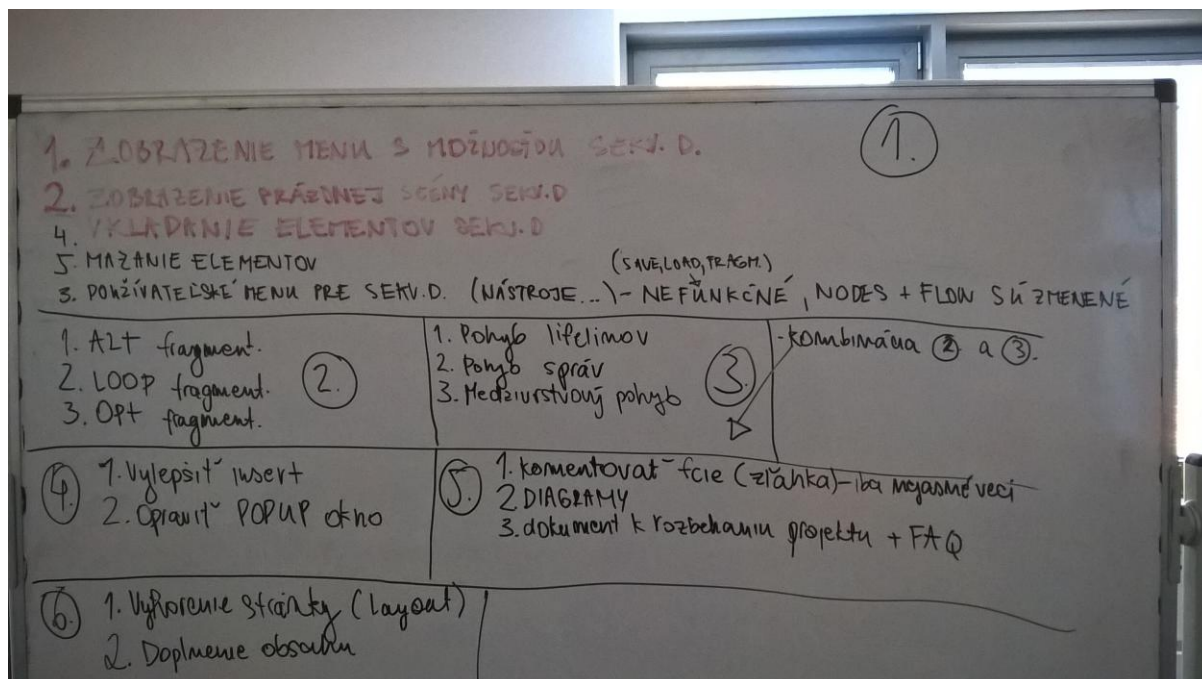 1.
1. ZOBRAZENIE MENU S MOŽNOSŤOU SEKV. D.
2. ZOBRAZENIE PRÁZDNEJ SCÉNY SEKV.D
4. VKLADANIE ELEMENTOV SEKV.D
5. MAZANIE ELEMENTOV
(SAVE, LOAD, FRAGM.)
3. POUŽÍVATEĽSKÉ MENU PRE SEKV.D. (NÁSTROJE...) - NEFUNKČNÉ, NODES + FLOW SÚ ZMENENÉ
1. ALT fragment.
2. LOOP fragment.
3. OPT fragment.
2.
1. Pohyb lifelinov
2. Pohyb správ
3. Medzivrstvový pohyb
3.
- kombinácia 2 a 3.
4.
1. Vylepšiť insert
2. Opraviť POPUP okno
5.
1. komentovať fcie (zľahka) - iba nejasné veci
2 DIAGRAMY
3. dokument k rozbehaniu projektu + FAQ
6.
1. Vytvorenie stránky (layout)
2. Doplnenie obsahu